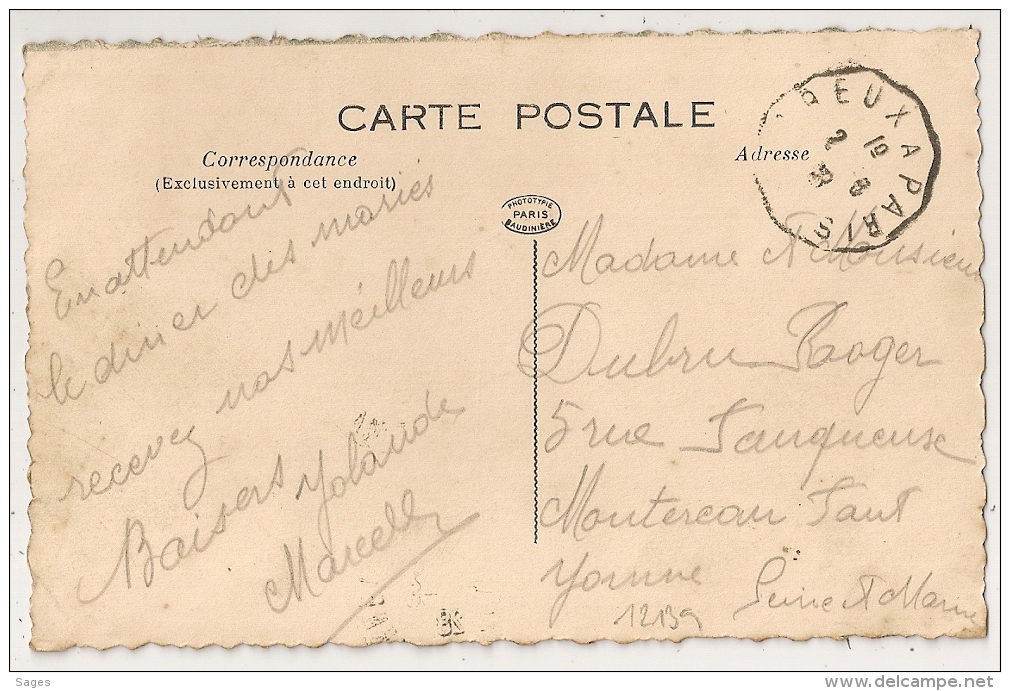 CARTE POSTALE
Correspondance
(Exclusivement à cet endroit)
Adresse
PHOTOTYPIE
PARIS
BAUDINIÈRE
DEUX A PARIS
19
2 8
38
En attendant
le diner des maries
recevez nos meilleurs
Baisers Yolande
Marcell
Madame et Monsieur
Dubru Roger
5 rue Tanqueuse
Montereau Faut
Yonne
Seine et Marne
1213a
Sages
delcampe.net